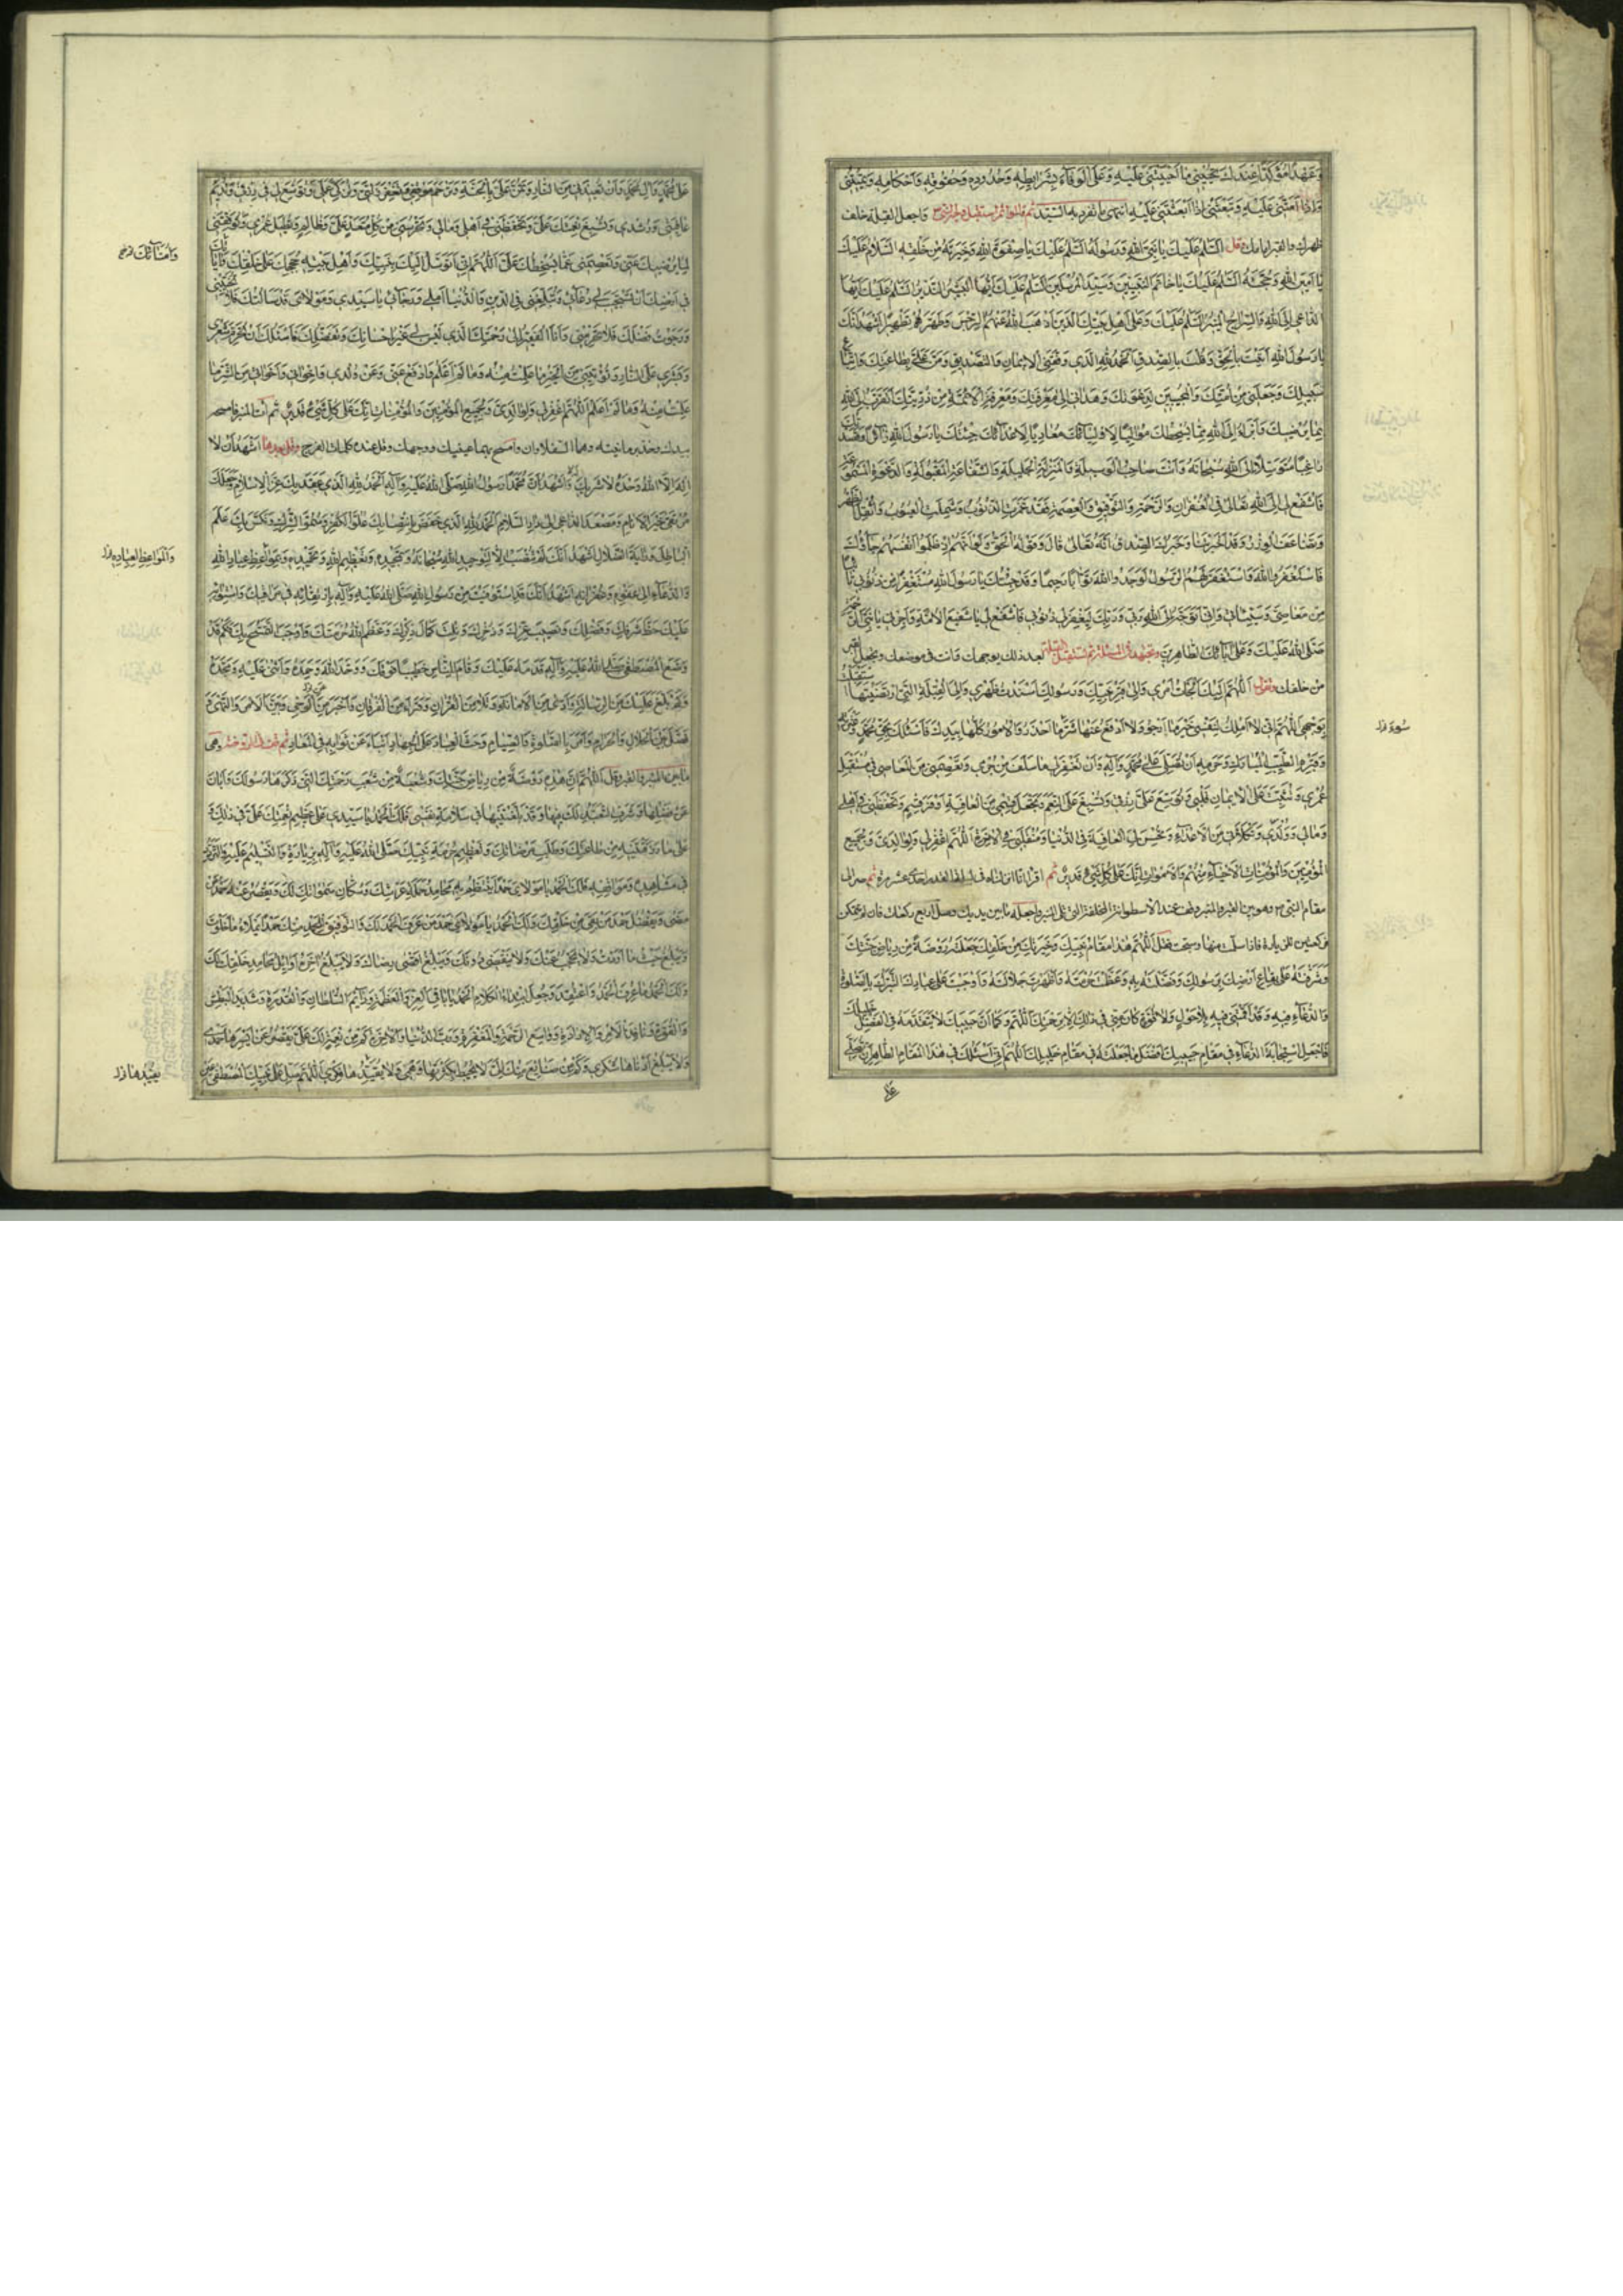 وَعَهْدًا مُؤَكَّدًا عِنْدَكَ تُحْيِيْنِي مَا أَحْيَيْتَنِي عَلَيْهِ وَعَلَى الْوَفَاءِ بِشَرَايِطِهِ وَحُدُودِهِ وَحُقُوقِهِ وَأَحْكَامِهِ وَتُمِيتُنِي
وَإِذَا أَمَتَّنِي عَلَيْهِ وَتَبْعَثُنِي إِذَا بَعَثْتَنِي عَلَيْهِ انتهى ما تفرد به السيد ثم واجعل القبلة خلف
ظهرك والقبر أمامك وقل السَّلَامُ عَلَيْكَ يَا نَبِيَّ اللهِ وَرَسُولَهُ السَّلَامُ عَلَيْكَ يَا صِفْوَةَ اللهِ وَخِيَرَتَهُ مِنْ خَلْقِهِ السَّلَامُ عَلَيْكَ
يَا أَمِينَ اللهِ وَحُجَّتَهُ السَّلَامُ عَلَيْكَ يَا خَاتَمَ النَّبِيِّينَ وَسَيِّدَ الْمُرْسَلِينَ السَّلَامُ عَلَيْكَ أَيُّهَا الْبَشِيرُ النَّذِيرُ السَّلَامُ عَلَيْكَ أَيُّهَا
الدَّاعِي إِلَى اللهِ وَالسِّرَاجُ الْمُنِيرُ السَّلَامُ عَلَيْكَ وَعَلَى أَهْلِ بَيْتِكَ الَّذِينَ أَذْهَبَ اللهُ عَنْهُمُ الرِّجْسَ وَطَهَّرَهُمْ تَطْهِيرًا أَشْهَدُ أَنَّكَ
يَا رَسُولَ اللهِ أَتَيْتَ بِالْحَقِّ وَقُلْتَ بِالصِّدْقِ الْحَمْدُ لِلهِ الَّذِي وَفَّقَنِي لِلْإِيمَانِ وَالتَّصْدِيقِ وَمَنَّ عَلَيَّ بِطَاعَتِكَ وَاتِّبَاعِ
سَبِيلِكَ وَجَعَلَنِي مِنْ أُمَّتِكَ وَالْمُجِيبِينَ لِدَعْوَتِكَ وَهَدَانِي إِلَى مَعْرِفَتِكَ وَمَعْرِفَةِ الْأَئِمَّةِ مِنْ ذُرِّيَّتِكَ أَتَقَرَّبُ إِلَى اللهِ
بِمَا يُرْضِيكَ وَأَبْرَأُ إِلَى اللهِ مِمَّا يُسْخِطُكَ مُوَالِيًا لِأَوْلِيَائِكَ مُعَادِيًا لِأَعْدَائِكَ جِئْتُكَ يَا رَسُولَ اللهِ زَائِرًا وَقَصَدْتُكَ
رَاغِبًا مُتَوَسِّلًا إِلَى اللهِ سُبْحَانَهُ وَأَنْتَ صَاحِبُ الْوَسِيلَةِ وَالْمَنْزِلَةِ الْجَلِيلَةِ وَالشَّفَاعَةِ الْمَقْبُولَةِ وَالدَّعْوَةِ الْمَسْمُوعَةِ
فَاشْفَعْ لِي إِلَى اللهِ تَعَالَى فِي الْغُفْرَانِ وَالرَّحْمَةِ وَالتَّوْفِيقِ وَالْعِصْمَةِ فَقَدْ غَمَرَتِ الذُّنُوبُ وَشَمِلَتِ الْعُيُوبُ وَأُثْقِلَ الظَّهْرُ
وَتَضَاعَفَ الْوِزْرُ وَقَدْ أَخْبَرْتَنَا وَخَبَرُكَ الصِّدْقُ أَنَّهُ تَعَالَى قَالَ وَقَوْلُهُ الْحَقُّ وَلَوْ أَنَّهُمْ إِذْ ظَلَمُوا أَنْفُسَهُمْ جَاءُوكَ
فَاسْتَغْفَرُوا اللهَ وَاسْتَغْفَرَ لَهُمُ الرَّسُولُ لَوَجَدُوا اللهَ تَوَّابًا رَحِيمًا وَقَدْ جِئْتُكَ يَا رَسُولَ اللهِ مُسْتَغْفِرًا مِنْ ذُنُوبِي تَائِبًا
مِنْ مَعَاصِيَّ وَسَيِّئَاتِي وَإِنِّي أَتَوَجَّهُ إِلَى اللهِ رَبِّي وَرَبِّكَ لِيَغْفِرَ لِي ذُنُوبِي فَاشْفَعْ لِي يَا شَفِيعَ الْأُمَّةِ وَأَجِرْنِي يَا نَبِيَّ الرَّحْمَةِ
صَلَّى اللهُ عَلَيْكَ وَعَلَى آبَائِكَ الطَّاهِرِينَ وتجتهد في المسئلة ثم تستقبل القبلة بعد ذلك بوجهك وأنت في موضعك وتجعل القبر
من خلفك وتقول اَللَّهُمَّ إِلَيْكَ أَلْجَأْتُ أَمْرِي وَإِلَى قَبْرِ نَبِيِّكَ وَرَسُولِكَ أَسْنَدْتُ ظَهْرِي وَإِلَى الْقِبْلَةِ الَّتِي ارْتَضَيْتَهَا اسْتَقْبَلْتُ
بِوَجْهِي اللَّهُمَّ إِنِّي لَا أَمْلِكُ لِنَفْسِي خَيْرَ مَا أَرْجُو وَلَا أَدْفَعُ عَنْهَا شَرَّ مَا أَحْذَرُ وَالْأُمُورُ كُلُّهَا بِيَدِكَ فَأَسْأَلُكَ بِحَقِّ مُحَمَّدٍ
وَقَبْرِهِ الطَّيِّبِ الْمُبَارَكِ وَحَرَمِهِ أَنْ تُصَلِّيَ عَلَى مُحَمَّدٍ وَآلِهِ وَأَنْ تَغْفِرَ لِي مَا سَلَفَ مِنْ جُرْمِي وَتَعْصِمَنِي مِنَ الْمَعَاصِي فِي مُسْتَقْبَلِ
عُمْرِي وَتُثَبِّتَ عَلَى الْإِيمَانِ قَلْبِي وَتُوَسِّعَ عَلَيَّ رِزْقِي وَتُسْبِغَ عَلَيَّ النِّعَمَ وَتَجْعَلَ قِسْمِي مِنَ الْعَافِيَةِ أَوْفَرَ قِسْمٍ وَتَحْفَظَنِي فِي أَهْلِي
وَمَالِي وَوُلْدِي وَتَكْلَأَنِي مِنَ الْأَعْدَاءِ وَتُحْسِنَ لِيَ الْعَافِيَةَ فِي الدُّنْيَا وَمُنْقَلَبِي فِي الْآخِرَةِ اللَّهُمَّ اغْفِرْ لِي وَلِوَالِدَيَّ وَلِجَمِيعِ
الْمُؤْمِنِينَ وَالْمُؤْمِنَاتِ الْأَحْيَاءِ مِنْهُمْ وَالْأَمْوَاتِ إِنَّكَ عَلَى كُلِّ شَيْءٍ قَدِيرٌ ثم اقرأ إنا أنزلناه في ليلة القدر إحدى عشر مرة ثم صر إلى
مقام النبي ص وهو بين القبر والمنبر وقف عند الأسطوانة المخلقة التي تلي المنبر واجعله ما بين يديك وصل أربع ركعات فإن لم تتمكن
فركعتين للزيارة فإذا سلمت منها وسبحت فقل اَللَّهُمَّ هَذَا مَقَامُ نَبِيِّكَ وَخِيَرَتِكَ مِنْ خَلْقِكَ جَعَلْتَهُ رَوْضَةً مِنْ رِيَاضِ جَنَّتِكَ
وَشَرَّفْتَهُ عَلَى بِقَاعِ أَرْضِكَ بِرَسُولِكَ وَفَضَّلْتَهُ بِهِ وَعَظَّمْتَ حُرْمَتَهُ وَأَظْهَرْتَ جَلَالَتَهُ وَأَوْجَبْتَ عَلَى عِبَادِكَ التَّبَرُّكَ بِالصَّلَوةِ
وَالدُّعَاءِ فِيهِ وَقَدْ أَقَمْتَنِي فِيهِ بِلَا حَوْلٍ وَلَا قُوَّةٍ كَانَ مِنِّي فِي ذَلِكَ إِلَّا بِرَحْمَتِكَ اللَّهُمَّ وَكَمَا أَنَّ حَبِيبَكَ لَا يَتَقَدَّمُهُ فِي الْفَضْلِ خَلِيلُكَ
فَاجْعَلِ اسْتِجَابَةَ الدُّعَاءِ فِي مَقَامِ حَبِيبِكَ أَفْضَلَ مَا جَعَلْتَهُ فِي مَقَامِ خَلِيلِكَ اللَّهُمَّ إِنِّي أَسْأَلُكَ فِي هَذَا الْمَقَامِ الطَّاهِرِ أَنْ تُصَلِّيَ
عَلَى
عَلَى مُحَمَّدٍ وَآلِ مُحَمَّدٍ وَأَنْ تُعِيذَنِي مِنَ النَّارِ وَتَمُنَّ عَلَيَّ بِالْجَنَّةِ وَتَرْحَمَ مَوْقِفِي وَتَغْفِرَ زَلَّتِي وَتُزَكِّيَ عَمَلِي وَتُوَسِّعَ لِي فِي رِزْقِي وَتُدِيمَ
عَافِيَتِي وَرُشْدِي وَتُسْبِغَ نِعْمَتَكَ عَلَيَّ وَتَحْفَظَنِي فِي أَهْلِي وَمَالِي وَتَحْرُسَنِي مِنْ كُلِّ مُتَعَدٍّ عَلَيَّ وَظَالِمٍ وَتُطِيلَ عُمْرِي وَتُوَفِّقَنِي
لِمَا يُرْضِيكَ عَنِّي وَتَعْصِمَنِي عَمَّا يُسْخِطُكَ عَلَيَّ اَللَّهُمَّ إِنِّي أَتَوَسَّلُ إِلَيْكَ بِنَبِيِّكَ وَأَهْلِ بَيْتِهِ حُجَجِكَ عَلَى خَلْقِكَ وَآيَاتِكَ
فِي أَرْضِكَ أَنْ تَسْتَجِيبَ لِي دُعَائِي وَتُبَلِّغَنِي فِي الدِّينِ وَالدُّنْيَا أَمَلِي وَرَجَائِي يَا سَيِّدِي وَمَوْلَايَ قَدْ سَأَلْتُكَ فَلَا تُخَيِّبْنِي
وَرَجَوْتُ فَضْلَكَ فَلَا تَحْرِمْنِي وَأَنَا الْفَقِيرُ إِلَى رَحْمَتِكَ الَّذِي لَيْسَ لِي غَيْرُ إِحْسَانِكَ وَتَفَضُّلِكَ فَأَسْئَلُكَ أَنْ تُحَرِّمَ شَعْرِي
وَبَشَرِي عَلَى النَّارِ وَتُؤْتِيَنِي مِنَ الْخَيْرِ مَا عَلِمْتُ مِنْهُ وَمَا لَمْ أَعْلَمْ وَادْفَعْ عَنِّي وَعَنْ وُلْدِي وَإِخْوَانِي وَأَخَوَاتِي مِنَ الشَّرِّ مَا
عَلِمْتُ مِنْهُ وَمَا لَمْ أَعْلَمْ اللَّهُمَّ اغْفِرْ لِي وَلِوَالِدَيَّ وَلِجَمِيعِ الْمُؤْمِنِينَ وَالْمُؤْمِنَاتِ إِنَّكَ عَلَى كُلِّ شَيْءٍ قَدِيرٌ ثم ائت المنبر فامسحه
بيدك وخذ برمانتيه وهما السفلاوان وامسح بهما عينيك ووجهك وقل عنده كلمات الفرج وقل بعدها أَشْهَدُ أَنْ لَا
إِلَهَ إِلَّا اللهُ وَحْدَهُ لَا شَرِيكَ لَهُ وَأَشْهَدُ أَنَّ مُحَمَّدًا رَسُولُ اللهِ صَلَّى اللهُ عَلَيْهِ وَآلِهِ الْحَمْدُ لِلهِ الَّذِي عَقَدَ بِكَ عِزَّ الْإِسْلَامِ وَجَعَلَكَ
مُرْتَقَى خَيْرِ الْأَنَامِ وَمَصْعَدَ الدَّاعِي إِلَى دَارِ السَّلَامِ الْحَمْدُ لِلهِ الَّذِي خَفَضَ بِانْتِصَابِكَ عُلُوَّ الْكُفْرِ وَسُمُوَّ الشِّرْكِ وَنَكَّسَ بِكَ عَلَمَ
الْبَاطِلِ وَرَايَةَ الضَّلَالِ أَشْهَدُ أَنَّكَ لَمْ تُنْصَبْ إِلَّا لِتَوْحِيدِ اللهِ سُبْحَانَهُ وَتَمْجِيدِهِ وَتَعْظِيمِ اللهِ وَتَحْمِيدِهِ وَلِمَوَاعِظِ عِبَادِ اللهِ
وَالدُّعَاءِ إِلَى عَفْوِهِ وَغُفْرَانِهِ أَشْهَدُ أَنَّكَ قَدِ اسْتَوْفَيْتَ مِنْ رَسُولِ اللهِ صَلَّى اللهُ عَلَيْهِ وَآلِهِ بِارْتِقَائِهِ فِي مَرَاقِيكَ وَاسْتِوَائِهِ
عَلَيْكَ حَظَّ شَرَفِكَ وَفَضْلِكَ وَنَصِيبَ عِزِّكَ وَذُخْرِكَ وَنِلْتَ كَمَالَ ذِكْرِكَ وَعَظَّمَ اللهُ حُرْمَتَكَ وَأَوْجَبَ التَّمَسُّحَ بِكَ فَكَمْ قَدْ
وَضَعَ الْمُصْطَفَى صَلَّى اللهُ عَلَيْهِ وَآلِهِ قَدَمَهُ عَلَيْكَ وَقَامَ لِلنَّاسِ خَطِيبًا فَوْقَكَ وَوَحَّدَ اللهَ وَحَمِدَهُ وَأَثْنَى عَلَيْهِ وَمَجَّدَهُ
وَكَمْ بَلَّغَ عَلَيْكَ مِنَ الرِّسَالَةِ وَأَدَّى مِنَ الْأَمَانَةِ وَتَلَا مِنَ الْقُرْآنِ وَقَرَأَ مِنَ الْفُرْقَانِ وَأَخْبَرَ مِنَ الْوَحْيِ وَبَيَّنَ الْأَمْرَ وَالنَّهْيَ وَ
فَصَّلَ بَيْنَ الْحَلَالِ وَالْحَرَامِ وَأَمَرَ بِالصَّلَوةِ وَالصِّيَامِ وَحَثَّ الْعِبَادَ عَلَى الْجِهَادِ وَأَنْبَأَ عَنْ ثَوَابِهِ فِي الْمَعَادِ ثم قف في الروضة وهي
ما بين المنبر والقبر وقل اَللَّهُمَّ إِنَّ هَذِهِ رَوْضَةٌ مِنْ رِيَاضِ جَنَّتِكَ وَشُعْبَةٌ مِنْ شُعَبِ رَحْمَتِكَ الَّتِي ذَكَرَهَا رَسُولُكَ وَأَبَانَ
عَنْ فَضْلِهَا وَشَرَفِ التَّعَبُّدِ لَكَ فِيهَا وَقَدْ بَلَّغْتَنِيهَا فِي سَلَامَةِ نَفْسِي فَلَكَ الْحَمْدُ يَا سَيِّدِي عَلَى عَظِيمِ نِعْمَتِكَ عَلَيَّ فِي ذَلِكَ وَ
عَلَى مَا رَزَقْتَنِيهِ مِنْ طَاعَتِكَ وَطَلَبِ مَرْضَاتِكَ وَتَعْظِيمِ حُرْمَةِ نَبِيِّكَ صَلَّى اللهُ عَلَيْهِ وَآلِهِ بِزِيَارَةِ وَالتَّسْلِيمِ عَلَيْهِ وَالتَّرَدُّدِ
فِي مَشَاهِدِهِ وَمَوَاقِفِهِ فَلَكَ الْحَمْدُ يَا مَوْلَايَ حَمْدًا يَنْتَظِمُ بِهِ مَحَامِدُ حَمَلَةِ عَرْشِكَ وَسُكَّانِ سَمَوَاتِكَ لَكَ وَيَقْصُرُ عَنْهُ حَمْدُ مَنْ
مَضَى وَيَفْضُلُ حَمْدَ مَنْ بَقِيَ مِنْ خَلْقِكَ وَلَكَ الْحَمْدُ يَا مَوْلَايَ حَمْدَ مَنْ عَرَفَ الْحَمْدَ لَكَ وَالتَّوْفِيقَ لِلْحَمْدِ مِنْكَ حَمْدًا يَمْلَأُ مَا خَلَقْتَ
وَيَبْلُغُ حَيْثُ مَا أَرَدْتَ وَلَا يَحْجُبُ عَنْكَ وَلَا يَنْقَضِي دُونَكَ وَيَبْلُغُ أَقْصَى رِضَاكَ وَلَا يَبْلُغُ آخِرَهُ أَوَائِلُ مَحَامِدِ خَلْقِكَ لَكَ
وَلَكَ الْحَمْدُ مَا عُرِفَ الْحَمْدُ وَاعْتُقِدَ وَجُعِلَ ابْتِدَاءُ الْكَلَامِ الْحَمْدَ يَا بَاقِيَ الْعِزَّةِ وَالْعَظَمَةِ وَدَائِمَ السُّلْطَانِ وَالْقُدْرَةِ وَشَدِيدَ الْبَطْشِ
وَالْقُوَّةِ وَنَافِذَ الْأَمْرِ وَالْإِرَادَةِ وَوَاسِعَ الرَّحْمَةِ وَالْمَغْفِرَةِ وَرَبَّ الدُّنْيَا وَالْآخِرَةِ كَمْ مِنْ نِعْمَةٍ لَكَ عَلَيَّ يَقْصُرُ عَنْ أَيْسَرِهَا حَمْدِي
وَلَا يَبْلُغُ أَدْنَاهَا شُكْرِي وَكَمْ مِنْ صَنَائِعَ مِنْكَ إِلَيَّ لَا يُحِيطُ بِكَثْرَتِهَا وَهْمِي وَلَا يُقَيِّدُهَا فِكْرِي اللَّهُمَّ صَلِّ عَلَى نَبِيِّكَ الْمُصْطَفَى